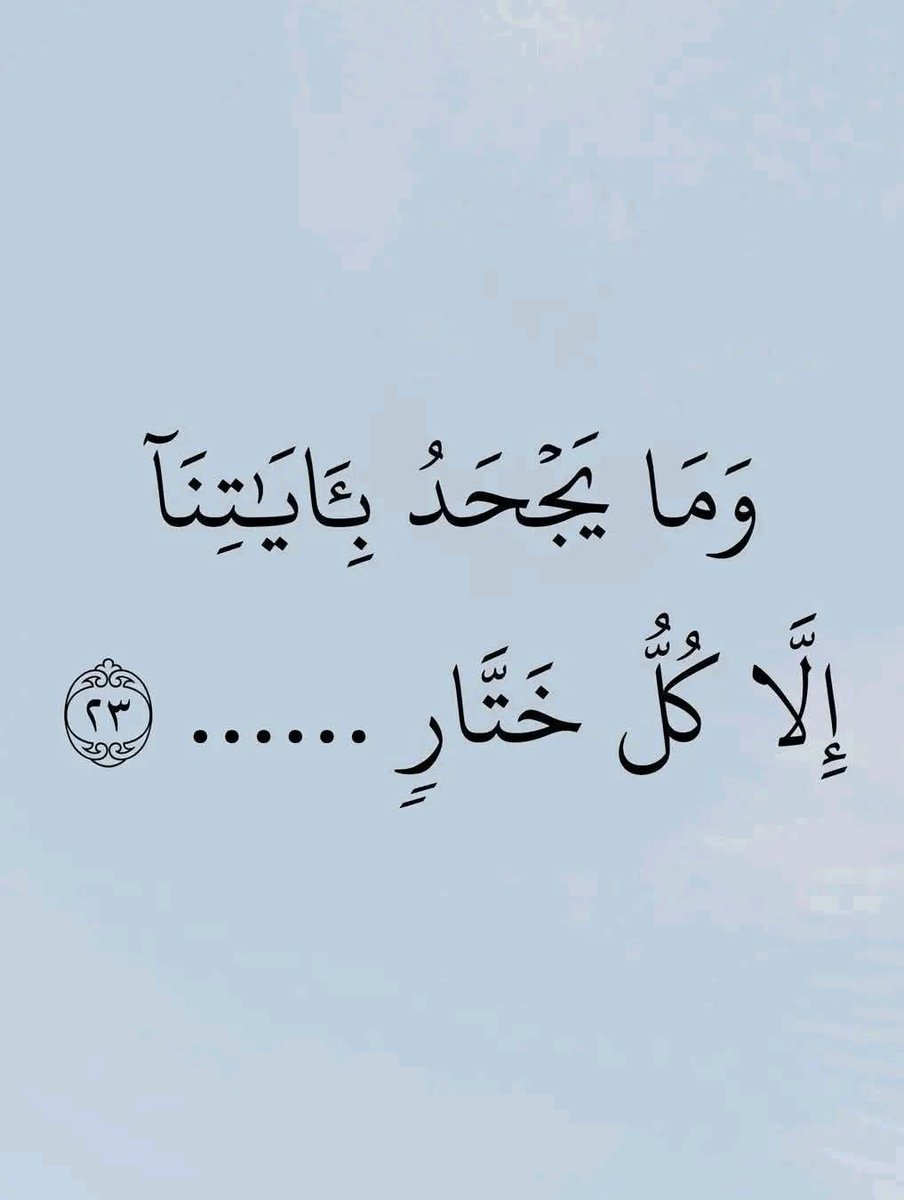 وَمَا يَجْحَدُ بِـَٔايَـٰتِنَآ
إِلَّا كُلُّ خَتَّارٍ ...... ٢٣